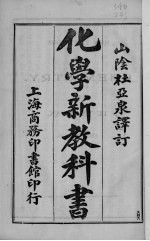 山陰杜亞泉譯訂
化學新教科書
上海商務印書館印行